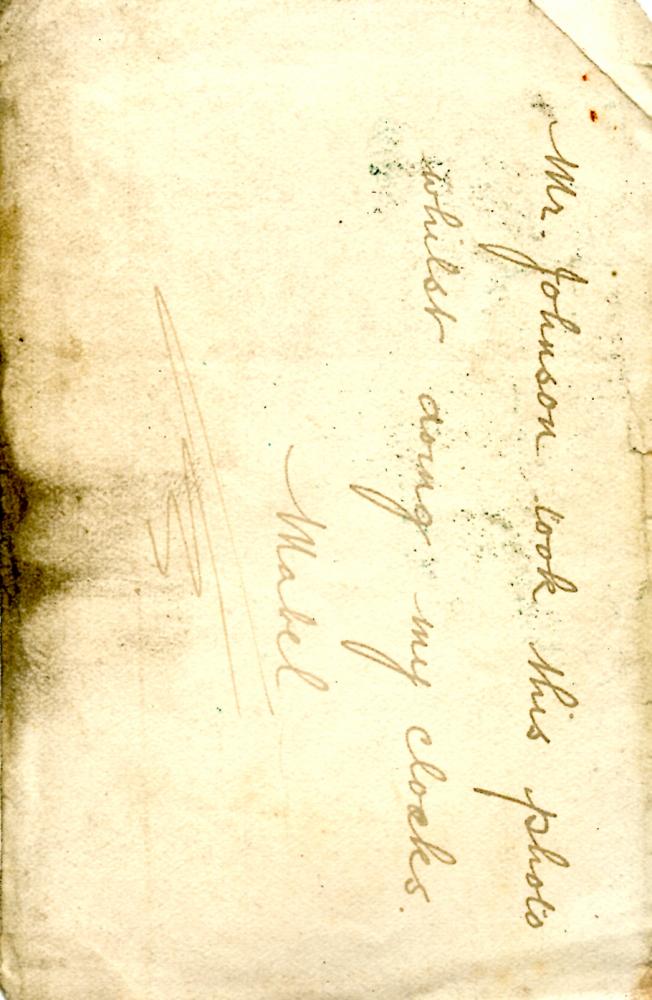 Mr. Johnson took this photo
whilst doing my clocks.
Mabel